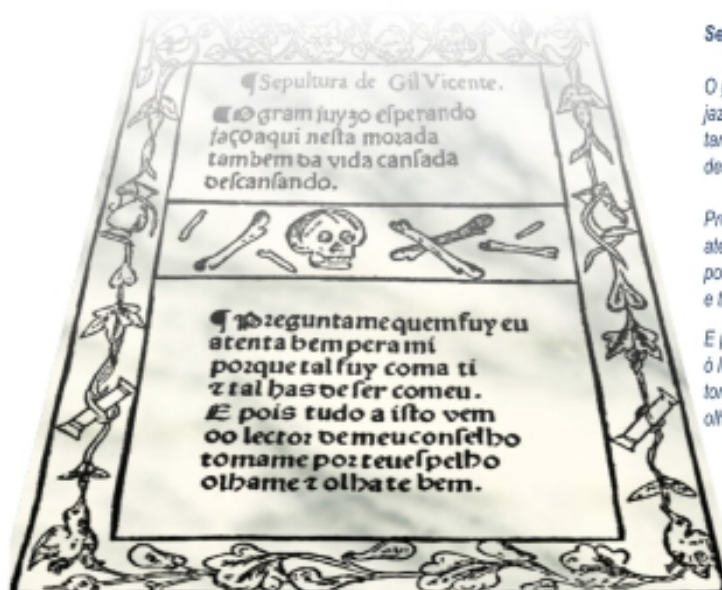 ¶ Sepultura de Gil Vicente.
¶ O gram juyzo eſperando
jaço aqui neſta morada
tambem da vida canſada
deſcanſando.
¶ Preguntame quem fuy eu
atenta bem pera mi
porque tal fuy coma ti
⁊ tal has de ſer comeu.
E pois tudo a iſto vem
oo lector de meu conſelho
tomame por teu eſpelho
olhame ⁊ olhate bem.
Se
O
jaz
de
ate
po
e
E